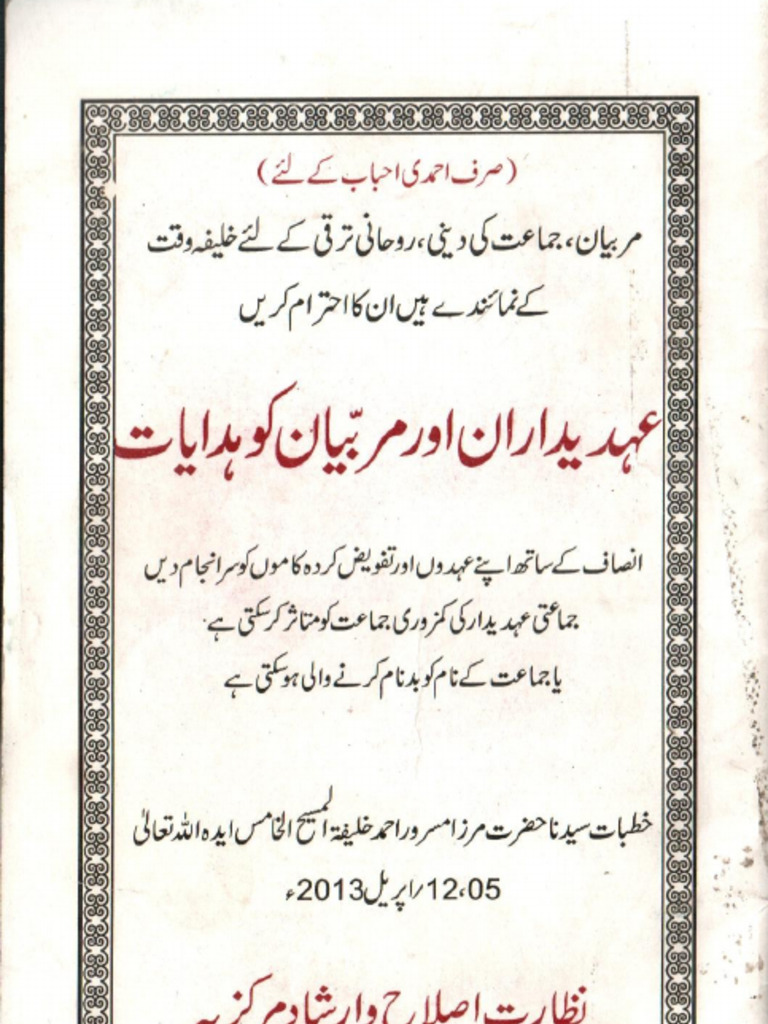 (صرف احمدی احباب کے لئے)
مربیان، جماعت کی دینی، روحانی ترقی کے لئے خلیفہ وقت
کے نمائندے ہیں ان کا احترام کریں
عہدیداران اور مربّیان کو ہدایات
انصاف کے ساتھ اپنے عہدوں اور تفویض کردہ کاموں کو سرانجام دیں
جماعتی عہدیدار کی کمزوری جماعت کو متاثر کرسکتی ہے
یا جماعت کے نام کو بدنام کرنے والی ہوسکتی ہے
خطبات سیدنا حضرت مرزا مسرور احمد خلیفۃ المسیح الخامس ایدہ اللہ تعالیٰ
05،12؍اپریل2013ء
نظارت اصلاح و ارشاد مرکزیہ